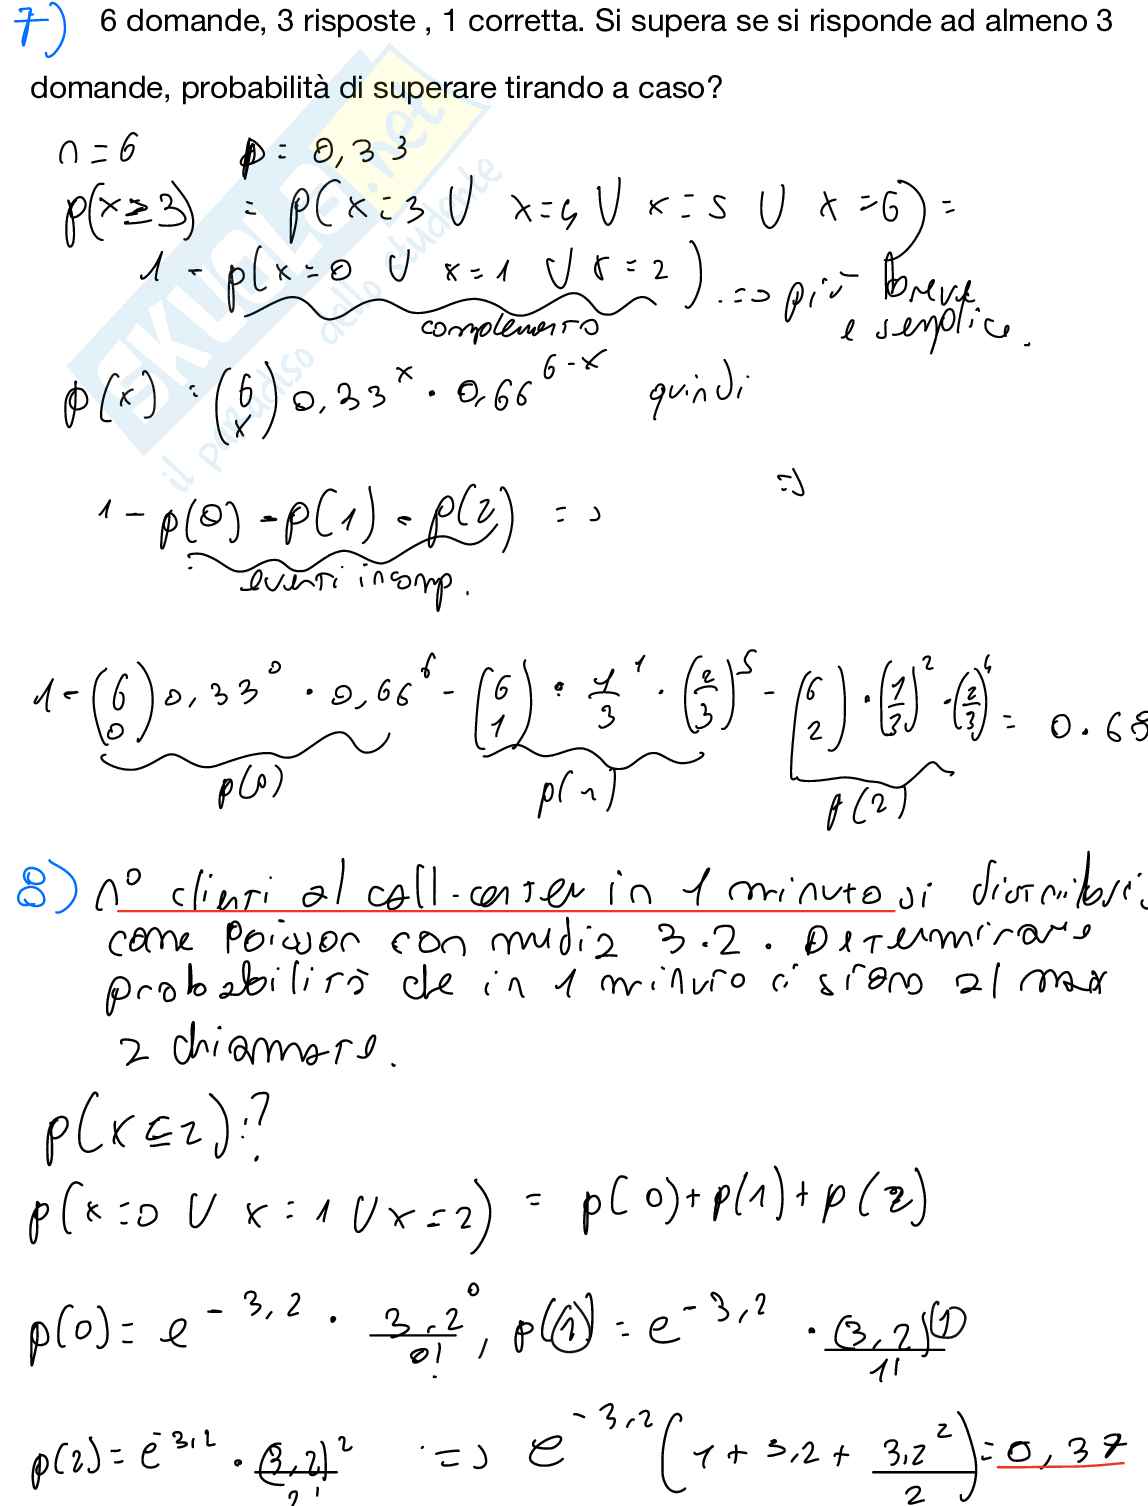 7) 6 domande, 3 risposte , 1 corretta. Si supera se si risponde ad almeno 3
domande, probabilità di superare tirando a caso?
SKUOLA.net
il paradiso dello studente
n = 6 p = 0,33
p(x≥3) = p(x=3 U x=4 U x=5 U x=6) =
1 - p(x=0 U x=1 U x=2) .=> più breve
complemento e semplice.
p(x) = (6 x) 0,33^x · 0,66^6-x quindi
=>
1 - p(0) - p(1) - p(2) =>
eventi incomp.
1 - (6 0) 0,33^0 · 0,66^6 - (6 1) · 1/3^1 · (2/3)^5 - (6 2) · (1/3)^2 · (2/3)^4 = 0.68
p(0) p(1) p(2)
8) n° clienti al call-center in 1 minuto si distribuis
come Poisson con media 3.2. Determinare
probabilità che in 1 minuto ci siano al max
2 chiamate.
p(x≤2)?
p(x=0 U x=1 U x=2) = p(0)+p(1)+p(2)
p(0) = e^-3,2 · 3,2^0/0! , p(1) = e^-3,2 · (3,2)^(1)/1!
p(2) = e^-3,2 · (3,2)^2/2! => e^-3,2 (1 + 3,2 + 3,2^2/2) = 0,37